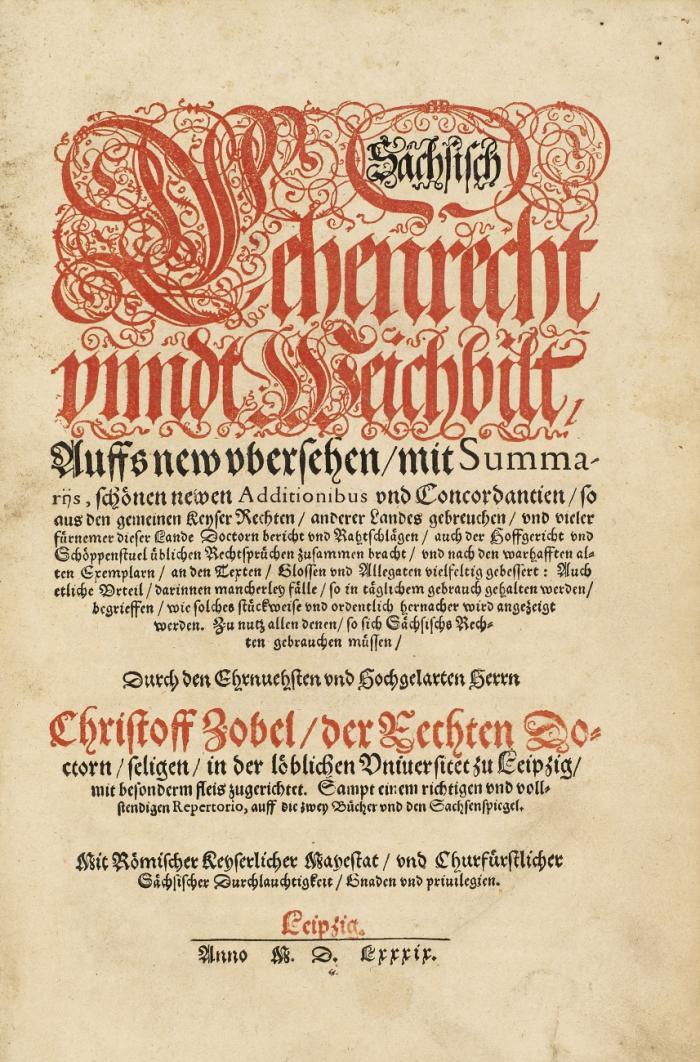 Sächsisch
Lehenrecht
vnndt Weichbilt,
Auffs new vbersehen/mit Summa-
rijs, schönen newen Additionibus vnd Concordantien/so
aus den gemeinen Keyser Rechten/ anderer Landes gebreuchen/ vnd vieler
fürnemer dieser Lande Doctorn bericht vnd Rahtschlägen/ auch der Hoffgericht vnd
Schöppenstuel üblichen Rechtsprüchen zusammen bracht/ vnd nach den warhafften al-
ten Exemplarn/ an den Texten/ Glossen vnd Allegaten vielfeltig gebessert: Auch
etliche Vrteil/ darinnen mancherley fälle/ so in täglichem gebrauch gehalten werden/
begrieffen/ wie solches stückweise vnd ordentlich hernacher wird angezeigt
werden. Zu nutz allen denen/ so sich Sächsischs Rech-
ten gebrauchen müssen/
Durch den Ehrnuehsten vnd Hochgelarten Herrn
Christoff Zobel/der Rechten Do-
ctorn/seligen/ in der löblichen Vniuersitet zu Leipzig/
mit besonderm fleis zugerichtet. Sampt einem richtigen vnd voll-
stendigen Repertorio, auff die zwey Bücher vnd den Sachsenspiegel.
Mit Römischer Keyserlicher Mayestat/ vnd Churfürstlicher
Sächsischer Durchlauchtigkeit/ Gnaden vnd priuilegien.
Leipzig.
Anno M. D. Lxxxix.